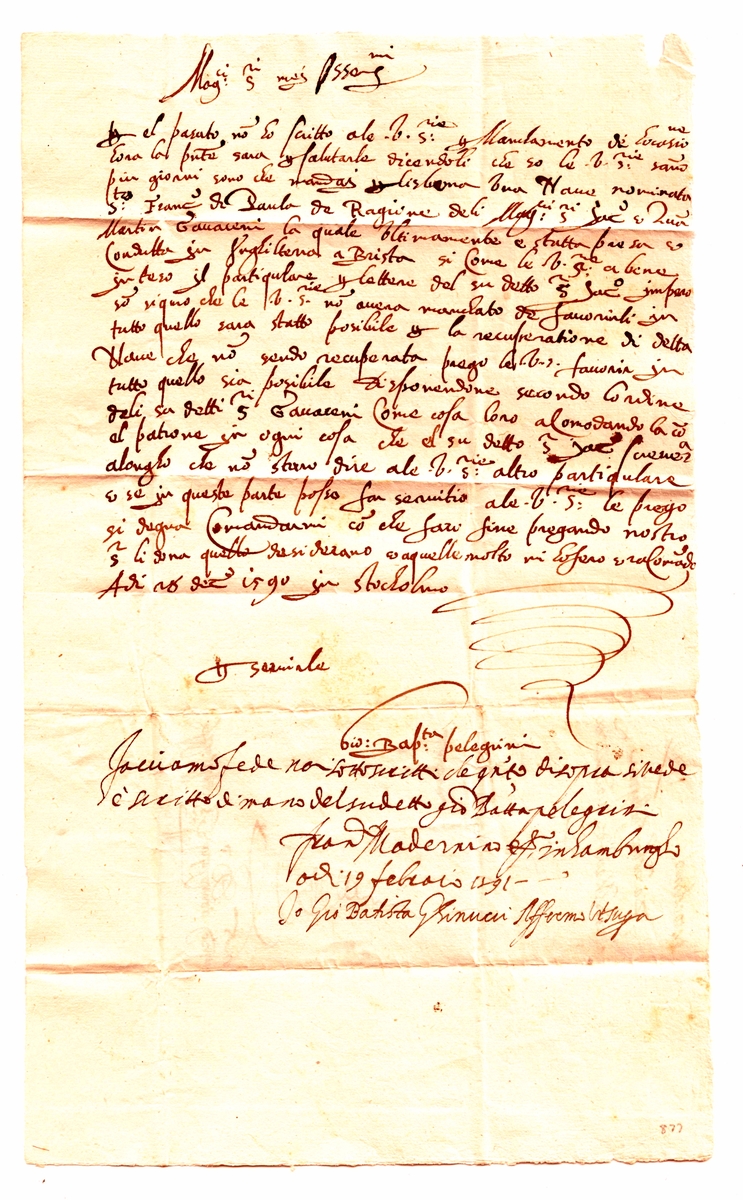 Mag:ci S:ri miei Osser:mi
el pasato nō ho scritto ale .V. S:rie p Mancamento di Ecasio ne
hora la pnte sara p salutarle dicendoli che so le .V. S:rie sano
piu giorni sono che mandai p lisbona Una Nave nominata
S:to Franc:o di Paula de Ragione deli Mag:ci S:ri Jac:o e Zuā
Martin Gavaceni la quale Ultimamente e statta presa e
Condutta in Inglitera a Brista si Come le .V. S:rie a bene
inteso il partiqulare p lettere del su detto S:r Jac:o impero
so siquro che le .V. S:rie nō avera manchato de favorirli in
tutto quello sara statto posibile p la recuperatione di detta
Nave che nō sendo recuperata prego le .V. S. favorir in
tutto quello sia posibile disponendone secondo lordine
deli su detti S:ri Gavaceni Come cosa loro acomodando la cō
el patrone in ogni cosa che el su detto S:r Jac:o screvera
alongho che nō staro dire ale .V. S:rie altro partiqulare
e se in queste parte posso far servitio ale .V. S:rie le prego
si degna Comandarmi cō che faro fine pregando nostro
S:r li dona quello desiderano e a quelle molto mi hofero e racomādo
Adi 28 dec:e 1590 in stocholmo
p servirle
Gio: Bap:ta pelegrini
Facciamo fede noi sottoscritti che q.to disopra si vede
è scritto di mano del sudetto gio Batta pelegrini
Fran:o Madernino in hamburgho
adi 19 febraio 1591
Io Gio Batista Ghinucci affermo Ut supa
877